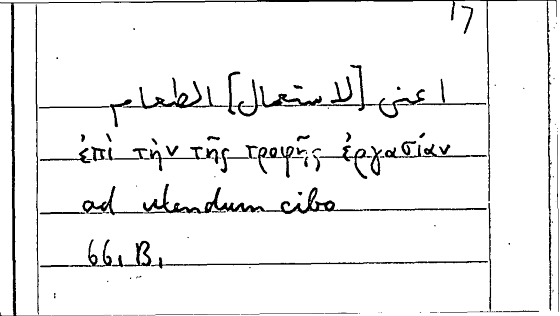 17
اعنى [لاستعمال] الطعام
ἐπὶ τὴν τῆς τροφῆς ἐργασίαν
ad utendum cibo
66, B,